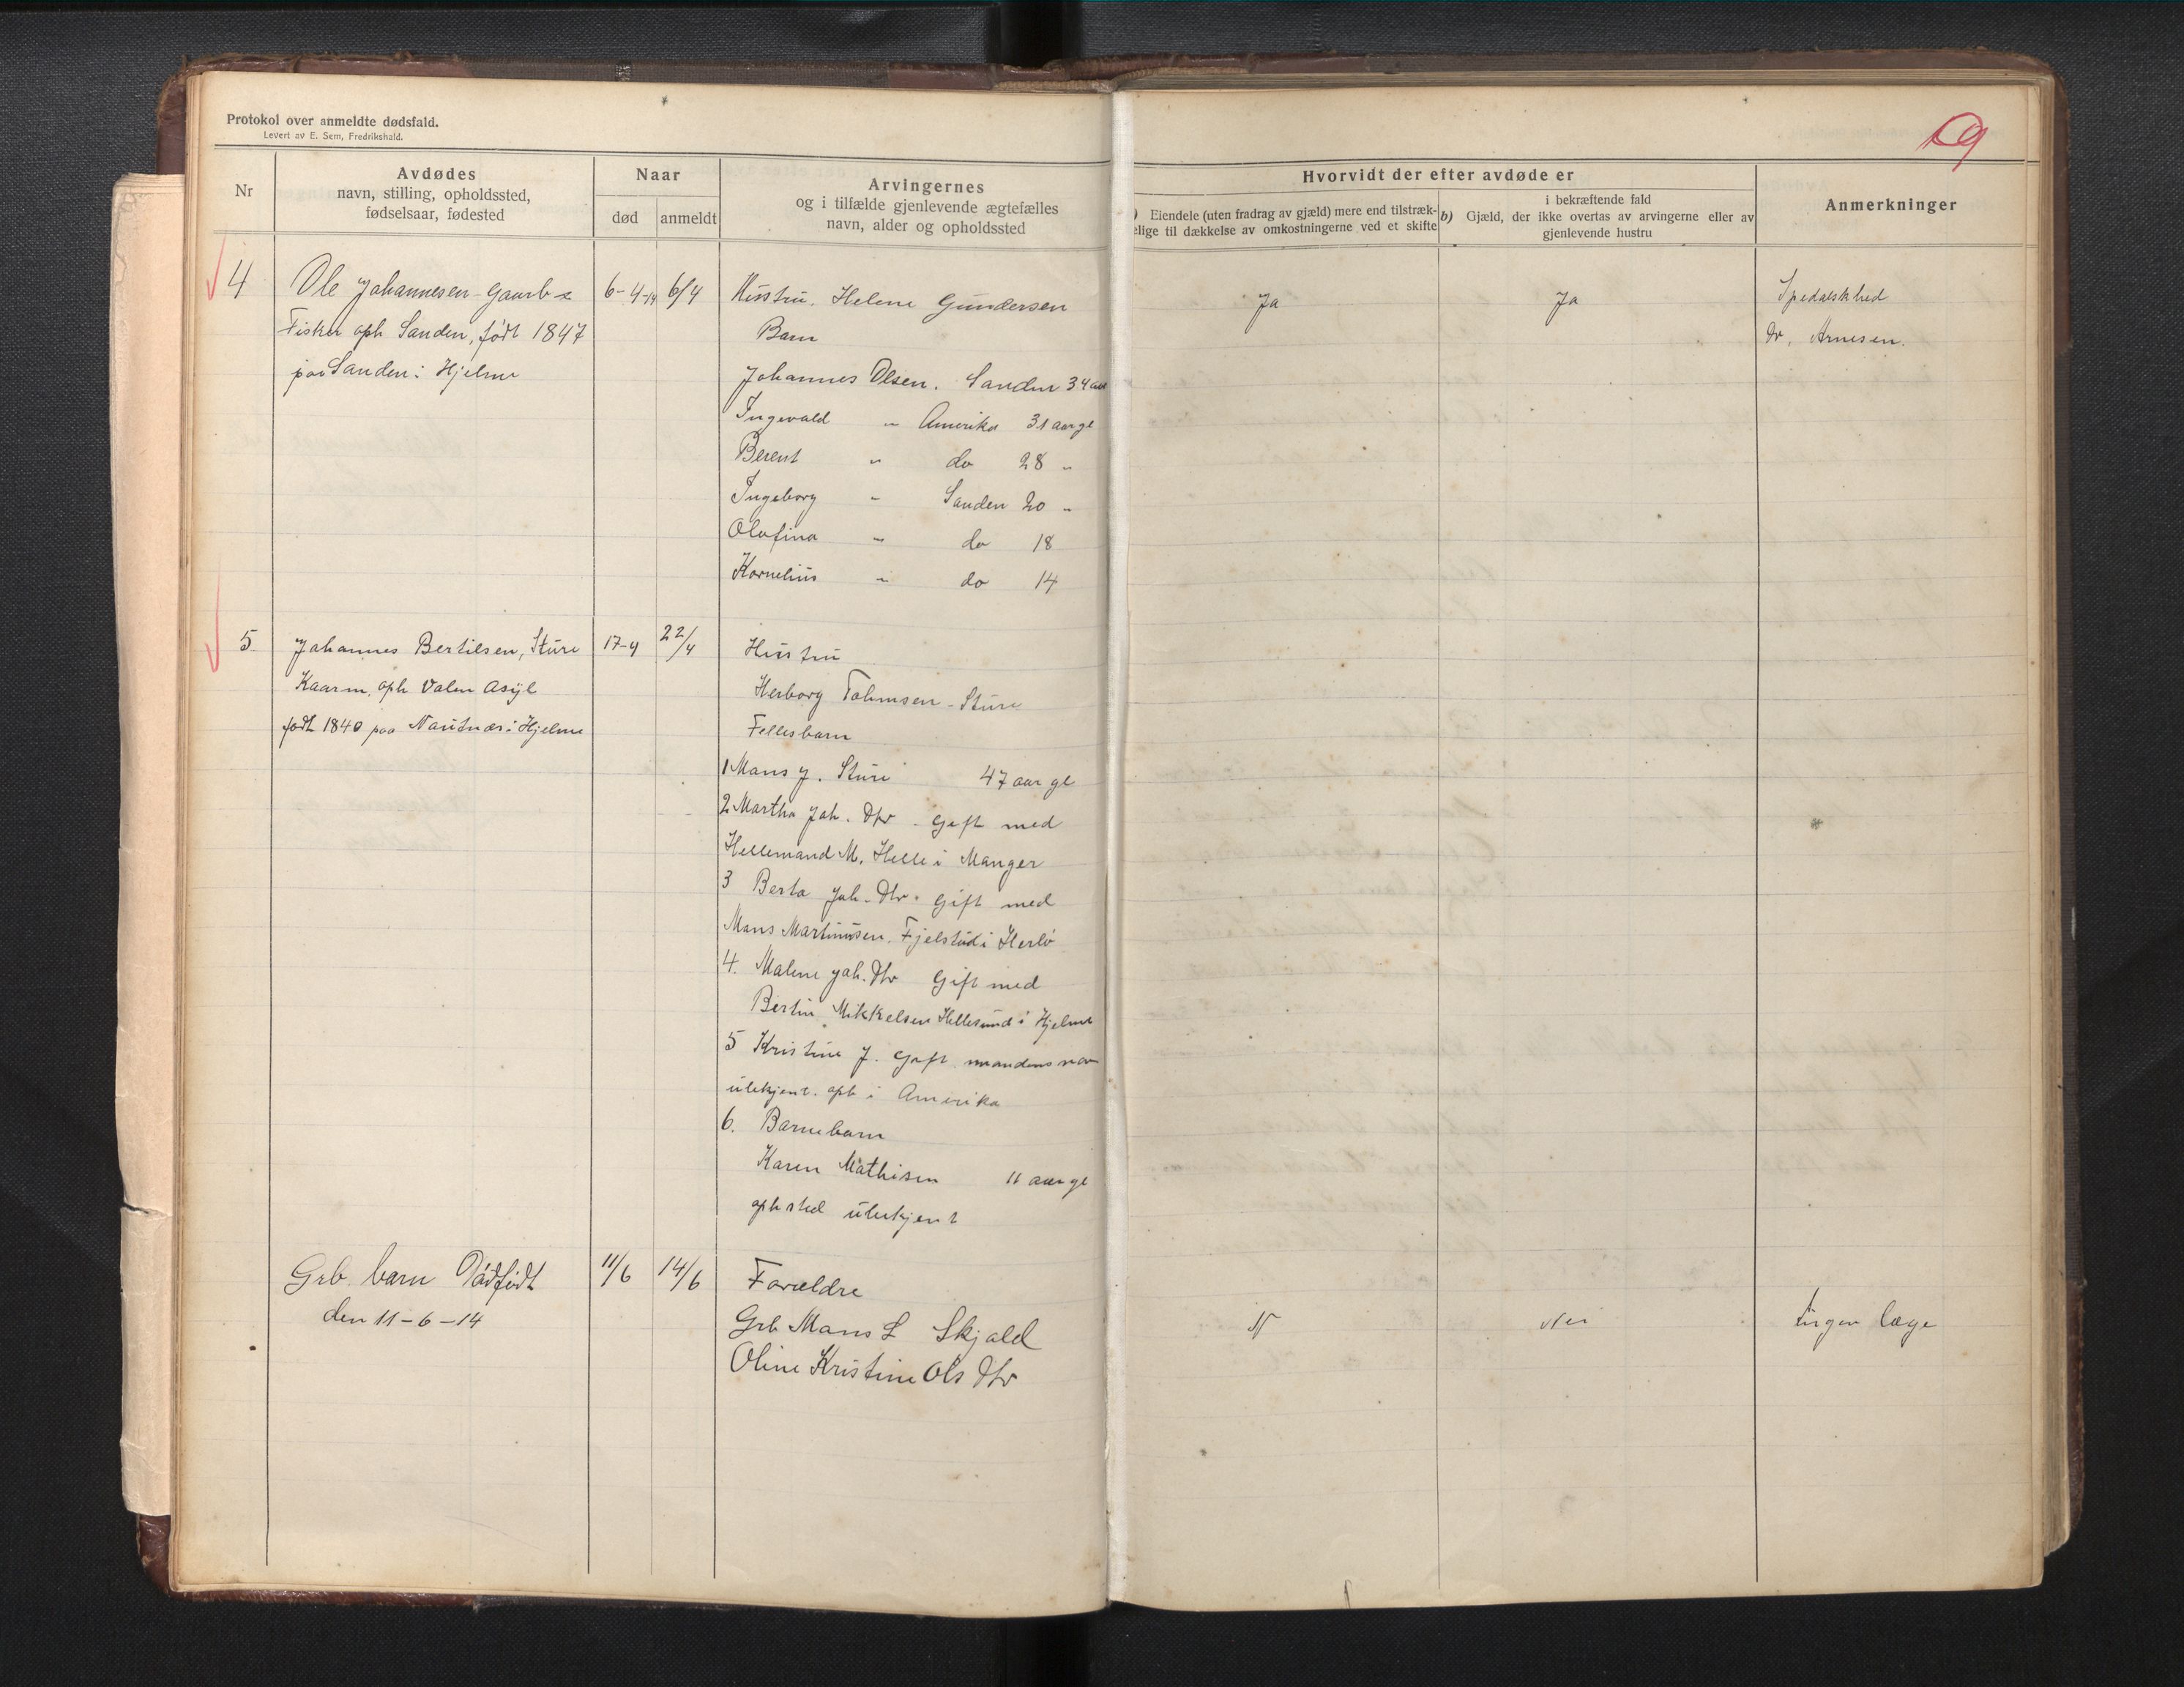 Protokol over anmeldte dødsfald.
Levert av E. Sem, Fredrikshald.
Nr
Avdødes
navn, stilling, opholdssted,
fødselsaar, fødested
Naar
død
anmeldt
Arvingernes
og i tilfælde gjenlevende ægtefælles
navn, alder og opholdssted
Hvorvidt der efter avdøde er
Eiendele (uten fradrag av gjæld) mere end tilstræk-
elige til dækkelse av omkostningerne ved et skifte
i bekræftende fald
b) Gjæld, der ikke overtas av arvingerne eller av
gjenlevende hustru
Anmerkninger
4
Ole Johannesen Gaarb
Fisker oph Sanden, født 1847
paa Sanden i Hjelme
6-4-14
6/4
Hustru. Helene Gundersen
Barn
Johannes Olsen. Sanden 34 aar
Ingevald " Amerika 31 aar gl
Berent " do 28 "
Ingeborg " Sanden 20 "
Olufina " do 18
Kornelius " do 14
Ja
Ja
Spedalskhed
Dr. Arnesen.
5
Johannes Bertilsen, Sture
Kaarm. oph Valen Asyl
født 1840 paa Nautnæs i Hjelme
17-4
22/4
Hustru
Herborg Tolmsen - Sture
Fellesbarn
1 Mans J. Sture 47 aar gl
2 Martha Joh. Dtr. Gift med
Hellemand M. Helle i Manger
3 Berta Joh. Dtr. Gift med
Mans Martinusen. Fjelstad i Herlø
4. Malene Joh. Dtr Gift med
Bertin Mikkelsen Hellesund i Hjelme
5 Kristine J. Gift mandens navn
ubekjent. oph i Amerika
6. Barnebarn
Karen Mathisen 11 aar gl
oph sted ubekjent
Grb. barn Dødfødt
den 11-6-14
11/6
14/6
Forældre
Grb Mans L Skjold
Oline Kristine Ols Dtr
N
Nei
Ingen læge